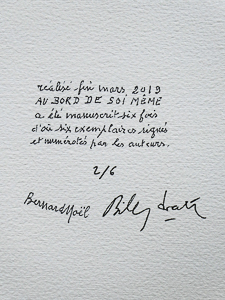 réalisé fin mars 2019
AU BORD DE SOI MÊME
a été manuscrit six fois
d'où six exemplaires signés
et numérotés par les auteurs.
2/6
Bernard Noël